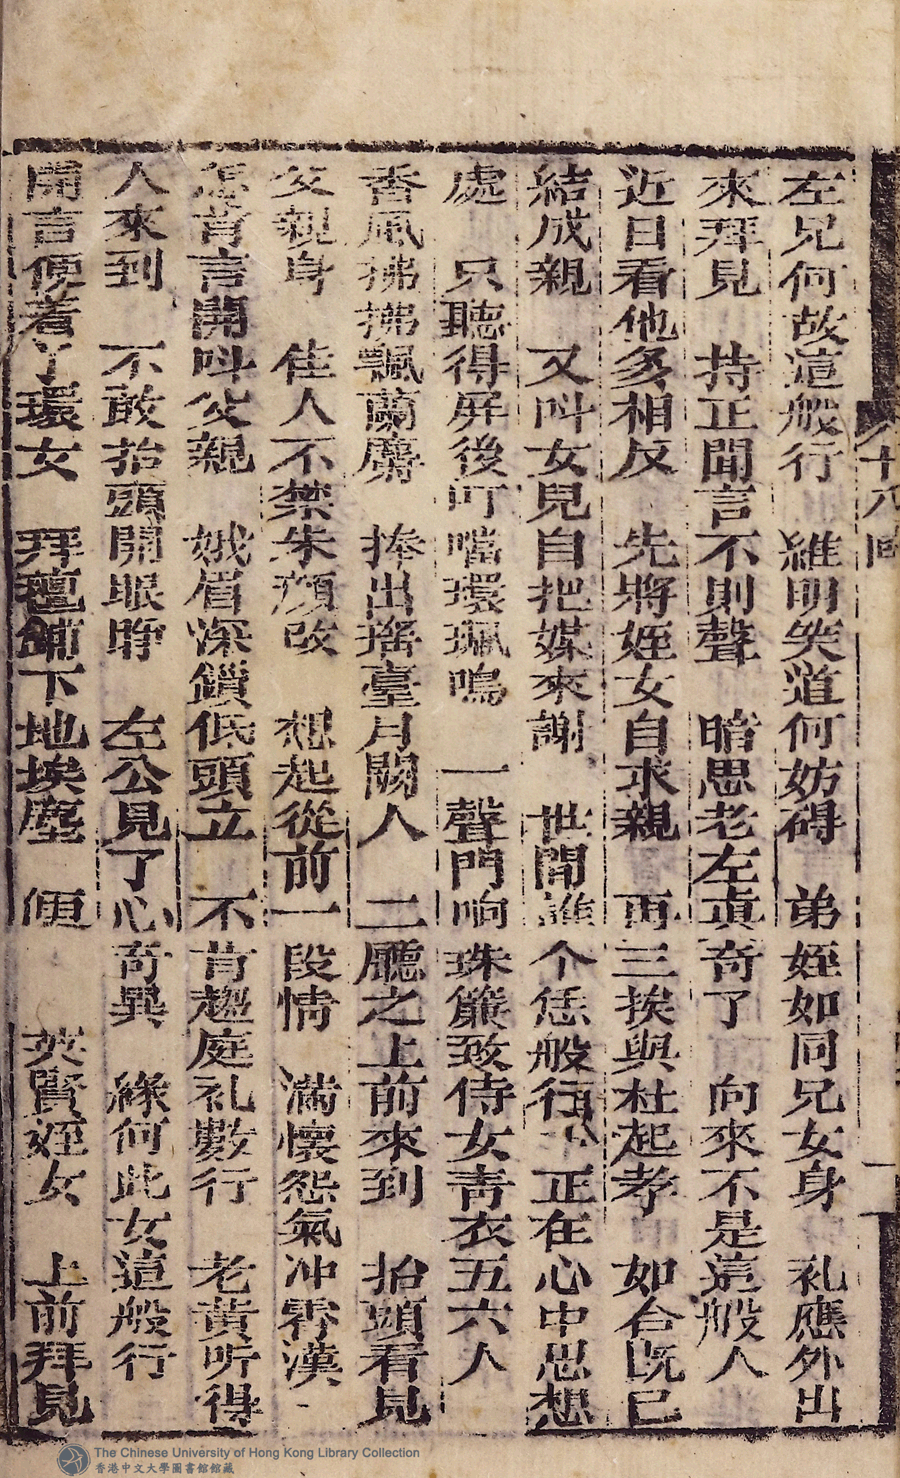 左兄何故這般行　維明笑道何妨碍　弟姪如同兄女身　礼應外出
來拜見　持正聞言不則聲　暗思老左真奇了　向來不是這般人
近日看他多相反　先將姪女自求親　再三挨與杜起孝　如今既已
結成親　又呌女兒自把媒來謝　世間誰个恁般行　正在心中思想
處　只聽得屏後叮噹環珮鳴　一聲門响珠簾致侍女靑衣五六人
香風拂拂飄蘭麝　捧出瑤臺月闕人　二廳之上前來到　抬頭看見
父親身　佳人不禁朱顏改　想起從前一段情　滿懷怨氣冲霄漢
怎肯言開呌父親　娥眉深鎖低頭立　不肯趨庭礼數行　老黃听得
人來到　不敢抬頭開眼睁　左公見了心奇異　緣何此女這般行
開言便着丫環女　拜毡鋪下地埃塵　便　英賢姪女　上前拜見
十八囘
The Chinese University of Hong Kong Library Collection
香港中文大學圖書館館藏